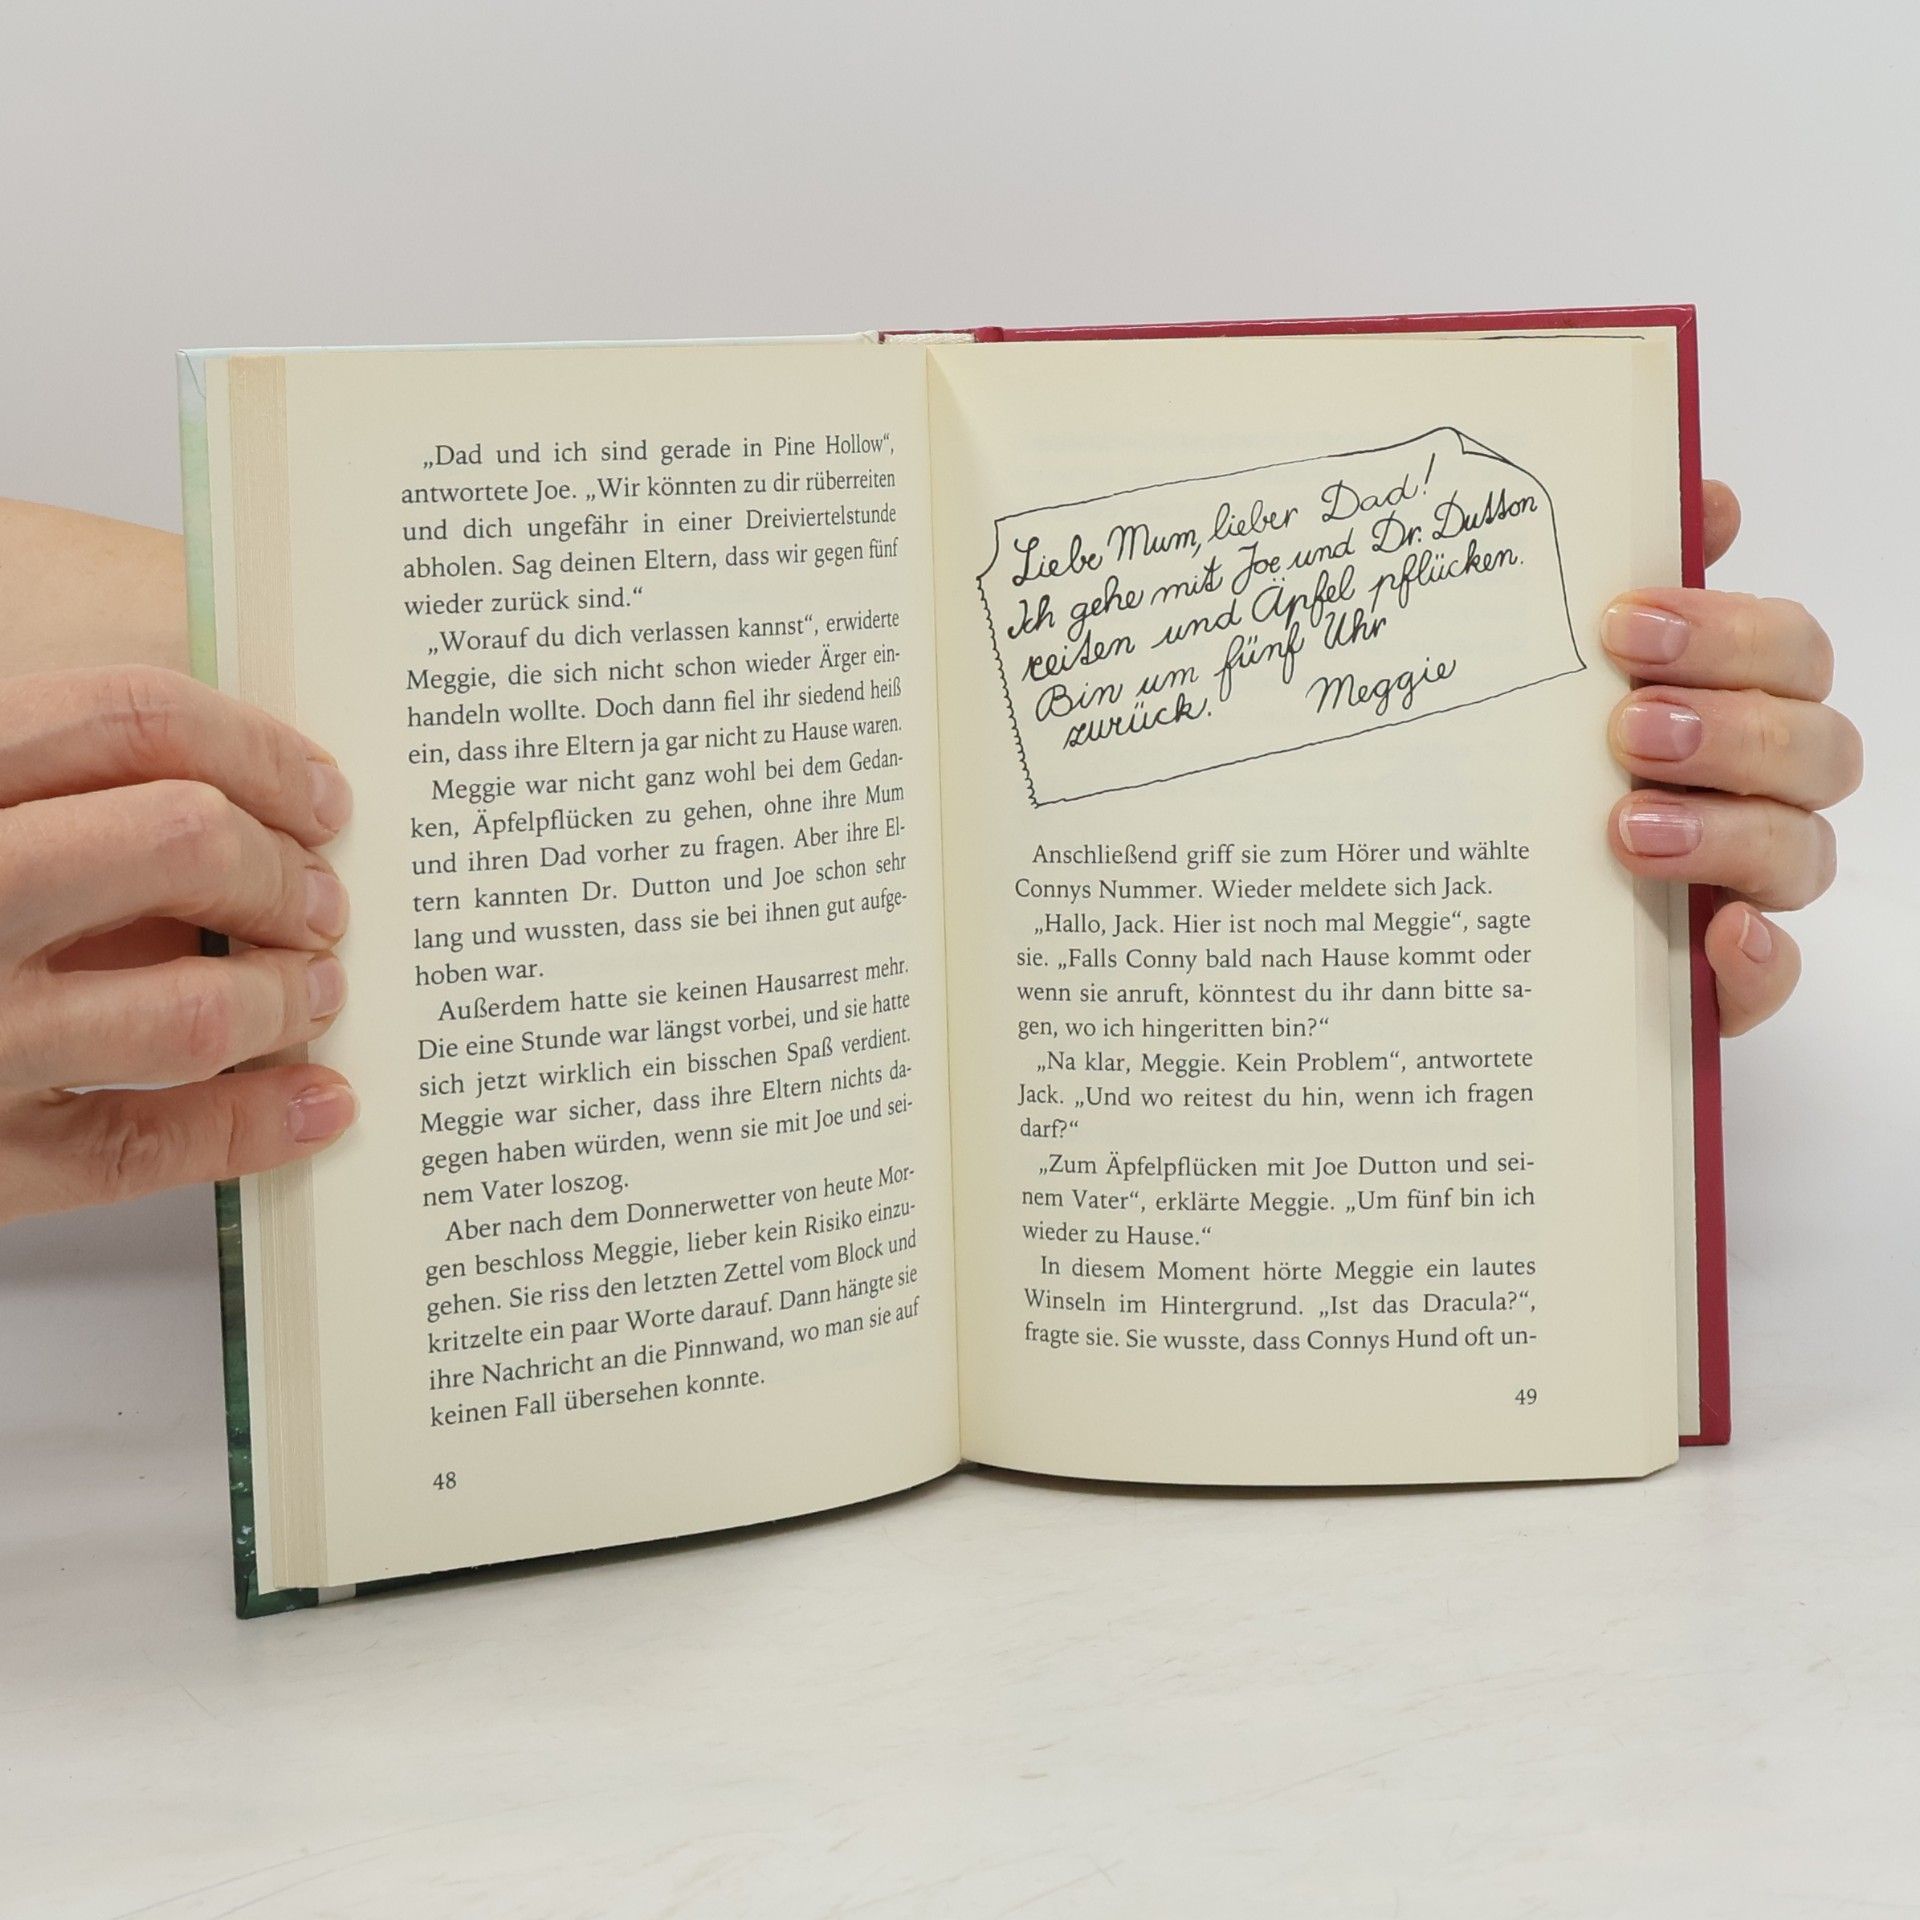 „Dad und ich sind gerade in Pine Hollow“,
antwortete Joe. „Wir könnten zu dir rüberreiten
und dich ungefähr in einer Dreiviertelstunde
abholen. Sag deinen Eltern, dass wir gegen fünf
wieder zurück sind.“
„Worauf du dich verlassen kannst“, erwiderte
Meggie, die sich nicht schon wieder Ärger ein-
handeln wollte. Doch dann fiel ihr siedend heiß
ein, dass ihre Eltern ja gar nicht zu Hause waren.
Meggie war nicht ganz wohl bei dem Gedan-
ken, Äpfelpflücken zu gehen, ohne ihre Mum
und ihren Dad vorher zu fragen. Aber ihre El-
tern kannten Dr. Dutton und Joe schon sehr
lang und wussten, dass sie bei ihnen gut aufge-
hoben war.
Außerdem hatte sie keinen Hausarrest mehr.
Die eine Stunde war längst vorbei, und sie hatte
sich jetzt wirklich ein bisschen Spaß verdient.
Meggie war sicher, dass ihre Eltern nichts da-
gegen haben würden, wenn sie mit Joe und sei-
nem Vater loszog.
Aber nach dem Donnerwetter von heute Mor-
gen beschloss Meggie, lieber kein Risiko einzu-
gehen. Sie riss den letzten Zettel vom Block und
kritzelte ein paar Worte darauf. Dann hängte sie
ihre Nachricht an die Pinnwand, wo man sie auf
keinen Fall übersehen konnte.
48
Liebe Mum, lieber Dad!
Ich gehe mit Joe und Dr. Dutton
reiten und Äpfel pflücken.
Bin um fünf Uhr
zurück. Meggie
Anschließend griff sie zum Hörer und wählte
Connys Nummer. Wieder meldete sich Jack.
„Hallo, Jack. Hier ist noch mal Meggie“, sagte
sie. „Falls Conny bald nach Hause kommt oder
wenn sie anruft, könntest du ihr dann bitte sa-
gen, wo ich hingeritten bin?“
„Na klar, Meggie. Kein Problem“, antwortete
Jack. „Und wo reitest du hin, wenn ich fragen
darf?“
„Zum Äpfelpflücken mit Joe Dutton und sei-
nem Vater“, erklärte Meggie. „Um fünf bin ich
wieder zu Hause.“
In diesem Moment hörte Meggie ein lautes
Winseln im Hintergrund. „Ist das Dracula?“,
fragte sie. Sie wusste, dass Connys Hund oft un-
49